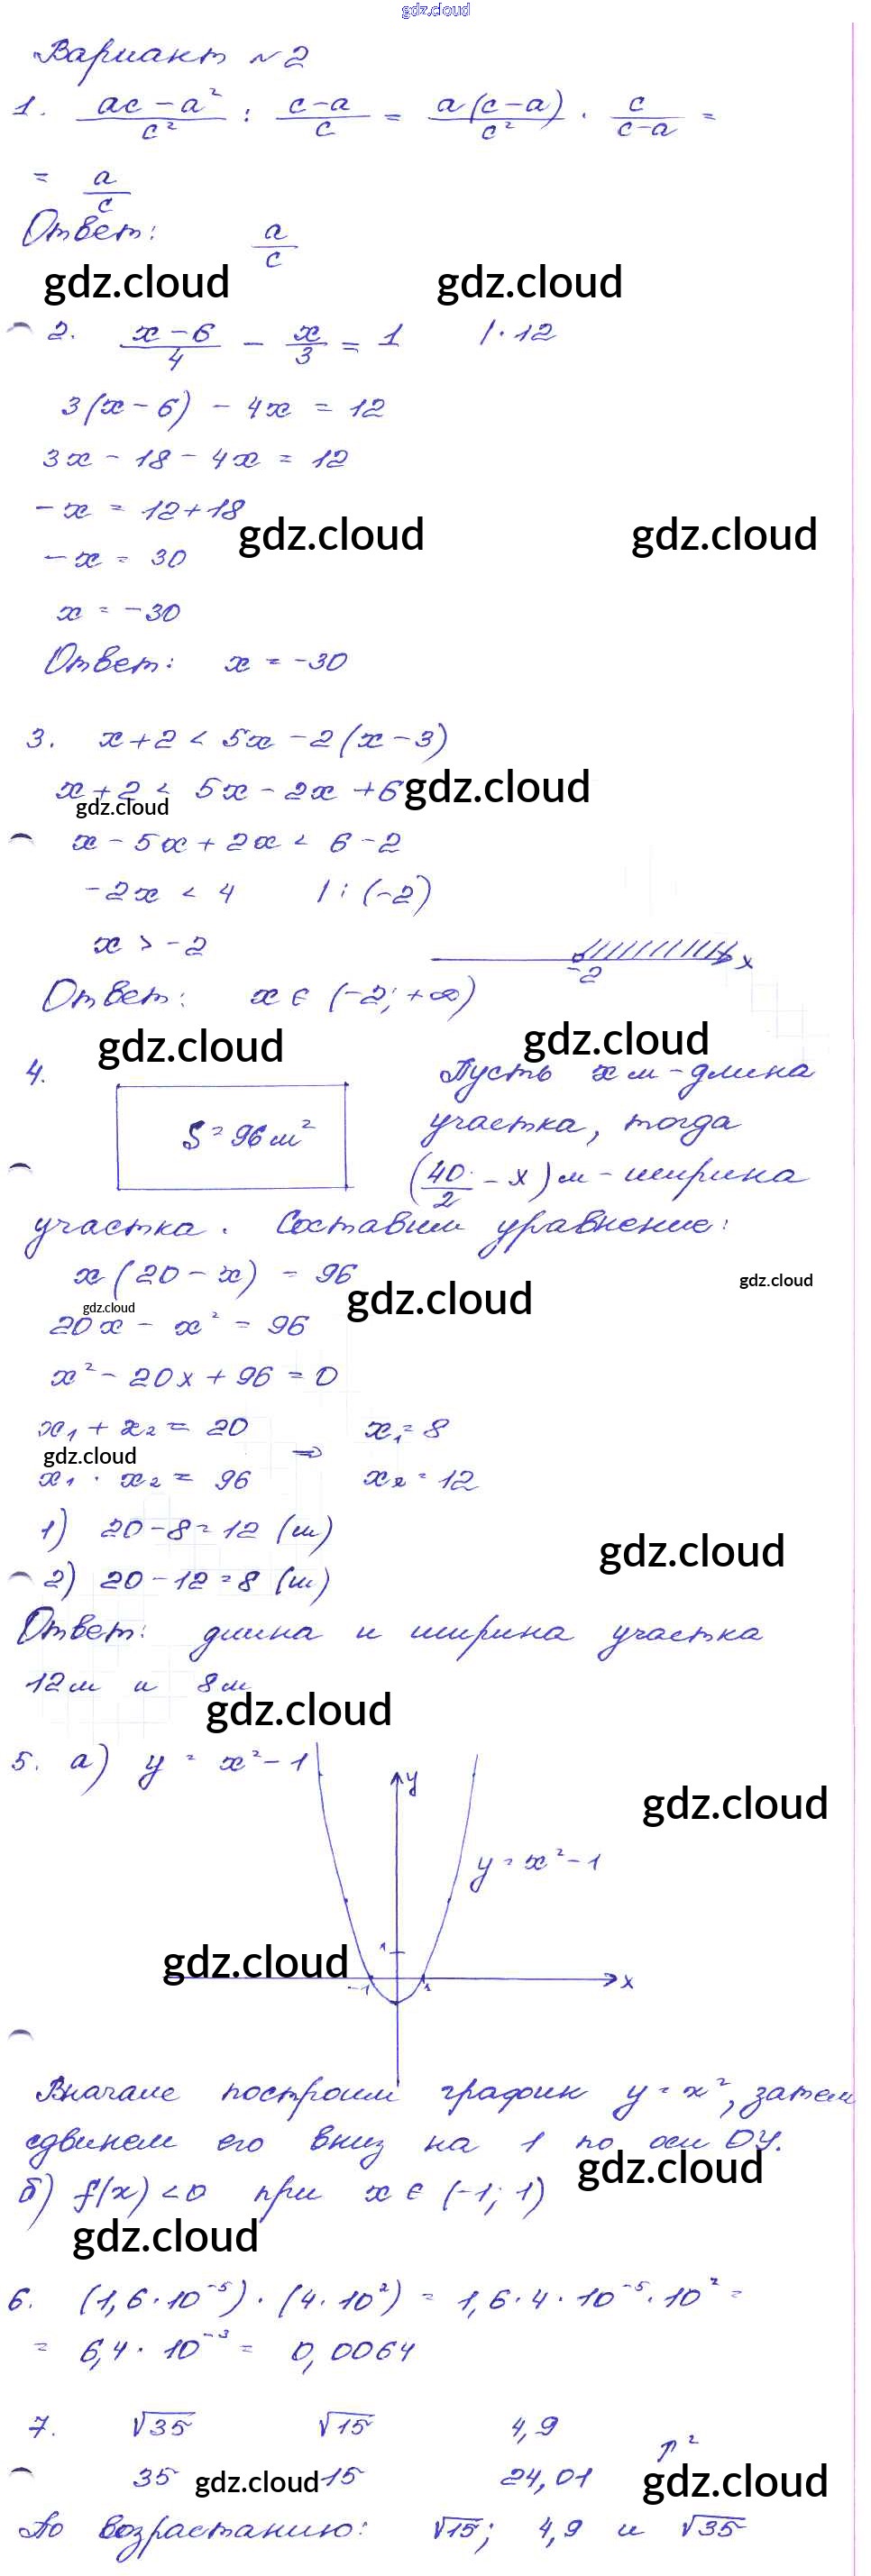 gdz.cloud
Вариант №2
1. (ac - a²)/c² : (c - a)/c = a(c - a)/c² · c/(c - a) =
= a/c
Ответ: a/c
gdz.cloud gdz.cloud
2. (x - 6)/4 - x/3 = 1 | · 12
3(x - 6) - 4x = 12
3x - 18 - 4x = 12
-x = 12 + 18
gdz.cloud gdz.cloud
-x = 30
x = -30
Ответ: x = -30
3. x + 2 < 5x - 2(x - 3)
x + 2 < 5x - 2x + 6 gdz.cloud
gdz.cloud
x - 5x + 2x < 6 - 2
-2x < 4 | : (-2)
x > -2
-2 x
Ответ: x ∈ (-2; +∞)
gdz.cloud gdz.cloud
4. S = 96 м² Пусть x м - длина
участка, тогда
(40/2 - x) м - ширина
участка. Составим уравнение:
x(20 - x) = 96
gdz.cloud gdz.cloud gdz.cloud
20x - x² = 96
x² - 20x + 96 = 0
x₁ + x₂ = 20 x₁ = 8
gdz.cloud ⇒
x₁ · x₂ = 96 x₂ = 12
1) 20 - 8 = 12 (м)
gdz.cloud
2) 20 - 12 = 8 (м)
Ответ: длина и ширина участка
12 м и 8 м
gdz.cloud
5. а) y = x² - 1
y
gdz.cloud
y = x² - 1
1
gdz.cloud
-1 1 x
Вначале построим график y = x², затем
сдвинем его вниз на 1 по оси OY.
gdz.cloud
б) f(x) < 0 при x ∈ (-1; 1)
gdz.cloud
6. (1,6 · 10⁻⁵) · (4 · 10²) = 1,6 · 4 · 10⁻⁵ · 10² =
= 6,4 · 10⁻³ = 0,0064
7. √35 √15 4,9
↑²
35 gdz.cloud 15 24,01 gdz.cloud
По возрастанию: √15; 4,9 и √35